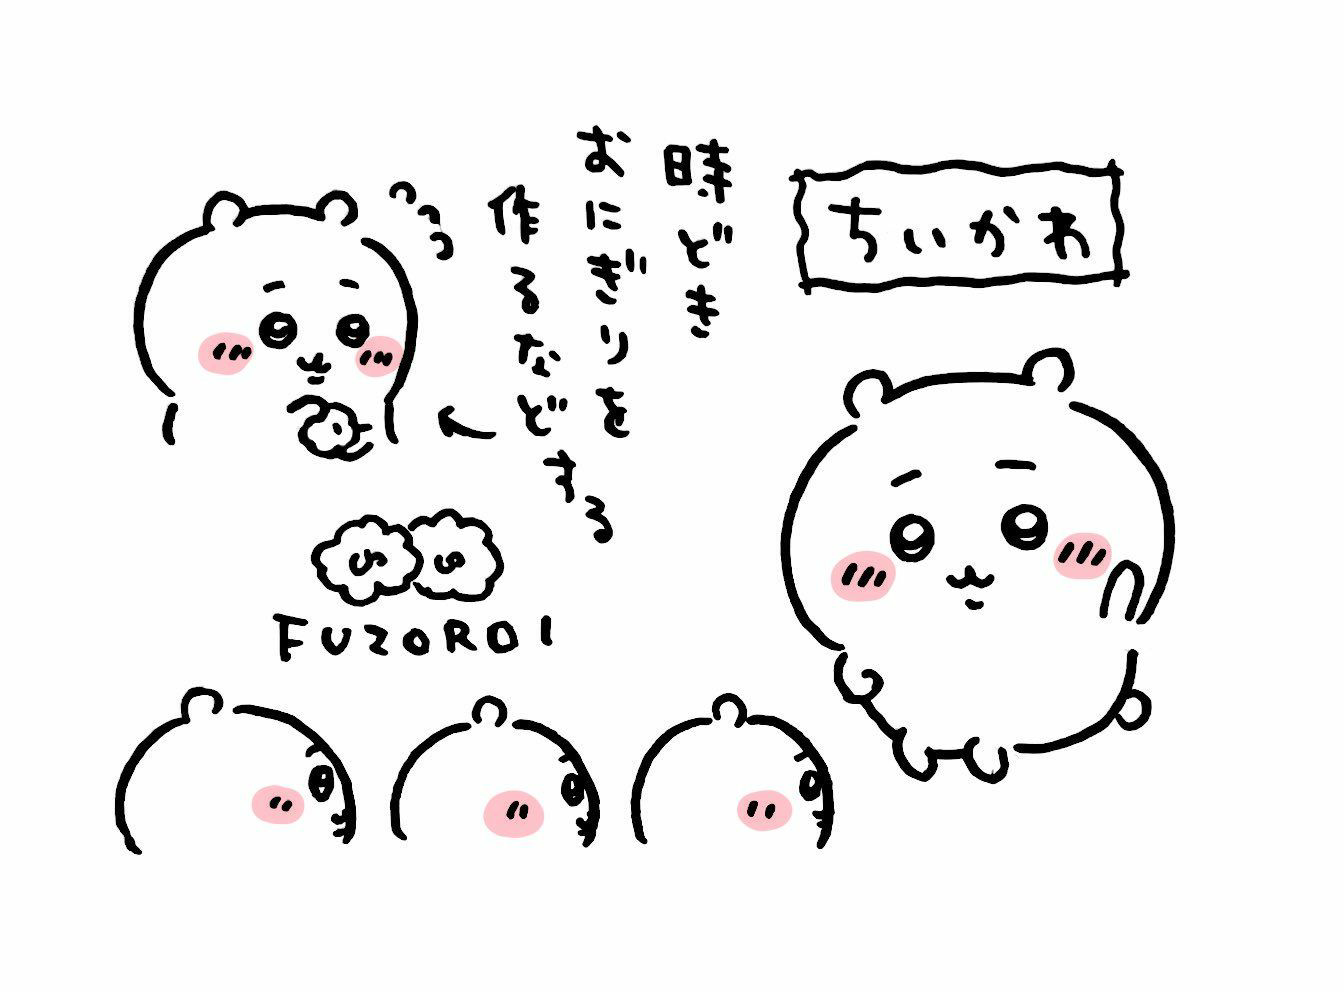 ちいかわ
時どき
おにぎりを
作るなどする
FUZOROI